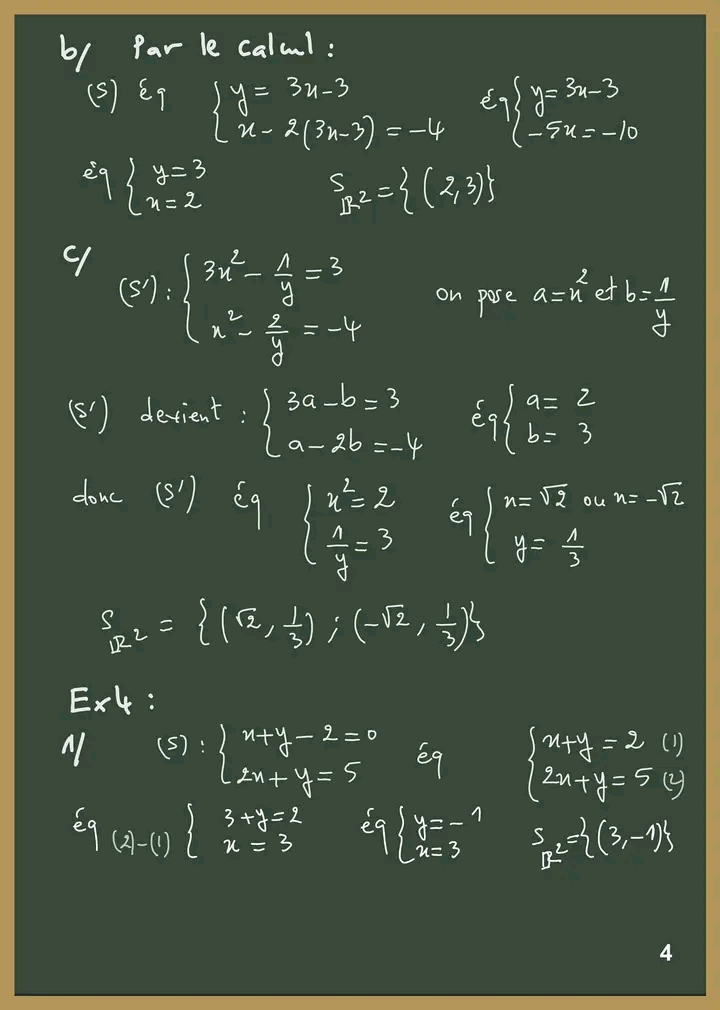 b/ Par le calcul :
(S) éq { y = 3x-3 ; x - 2(3x-3) = -4 éq { y = 3x-3 ; -5x = -10
éq { y = 3 ; x = 2 S_ℝ² = {(2,3)}
c/ (S') : { 3x² - 1/y = 3 ; x² - 2/y = -4 on pose a = x² et b = 1/y
(S') devient : { 3a - b = 3 ; a - 2b = -4 éq { a = 2 ; b = 3
donc (S') éq { x² = 2 ; 1/y = 3 éq { x = √2 ou x = -√2 ; y = 1/3
S_ℝ² = {(√2, 1/3) ; (-√2, 1/3)}
Ex4 :
1/ (S) : { x+y-2 = 0 ; 2x+y = 5 éq { x+y = 2 (1) ; 2x+y = 5 (2)
éq (2)-(1) { 3+y = 2 ; x = 3 éq { y = -1 ; x = 3 S_ℝ² = {(3,-1)}
4